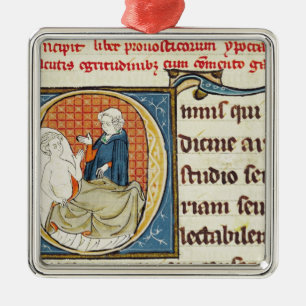 ncipit liber pronosticorum ypocr
cutis egritudinibus cum comento ga
mnis qui
dicine ar
studio seu
riam seu
lectabilem